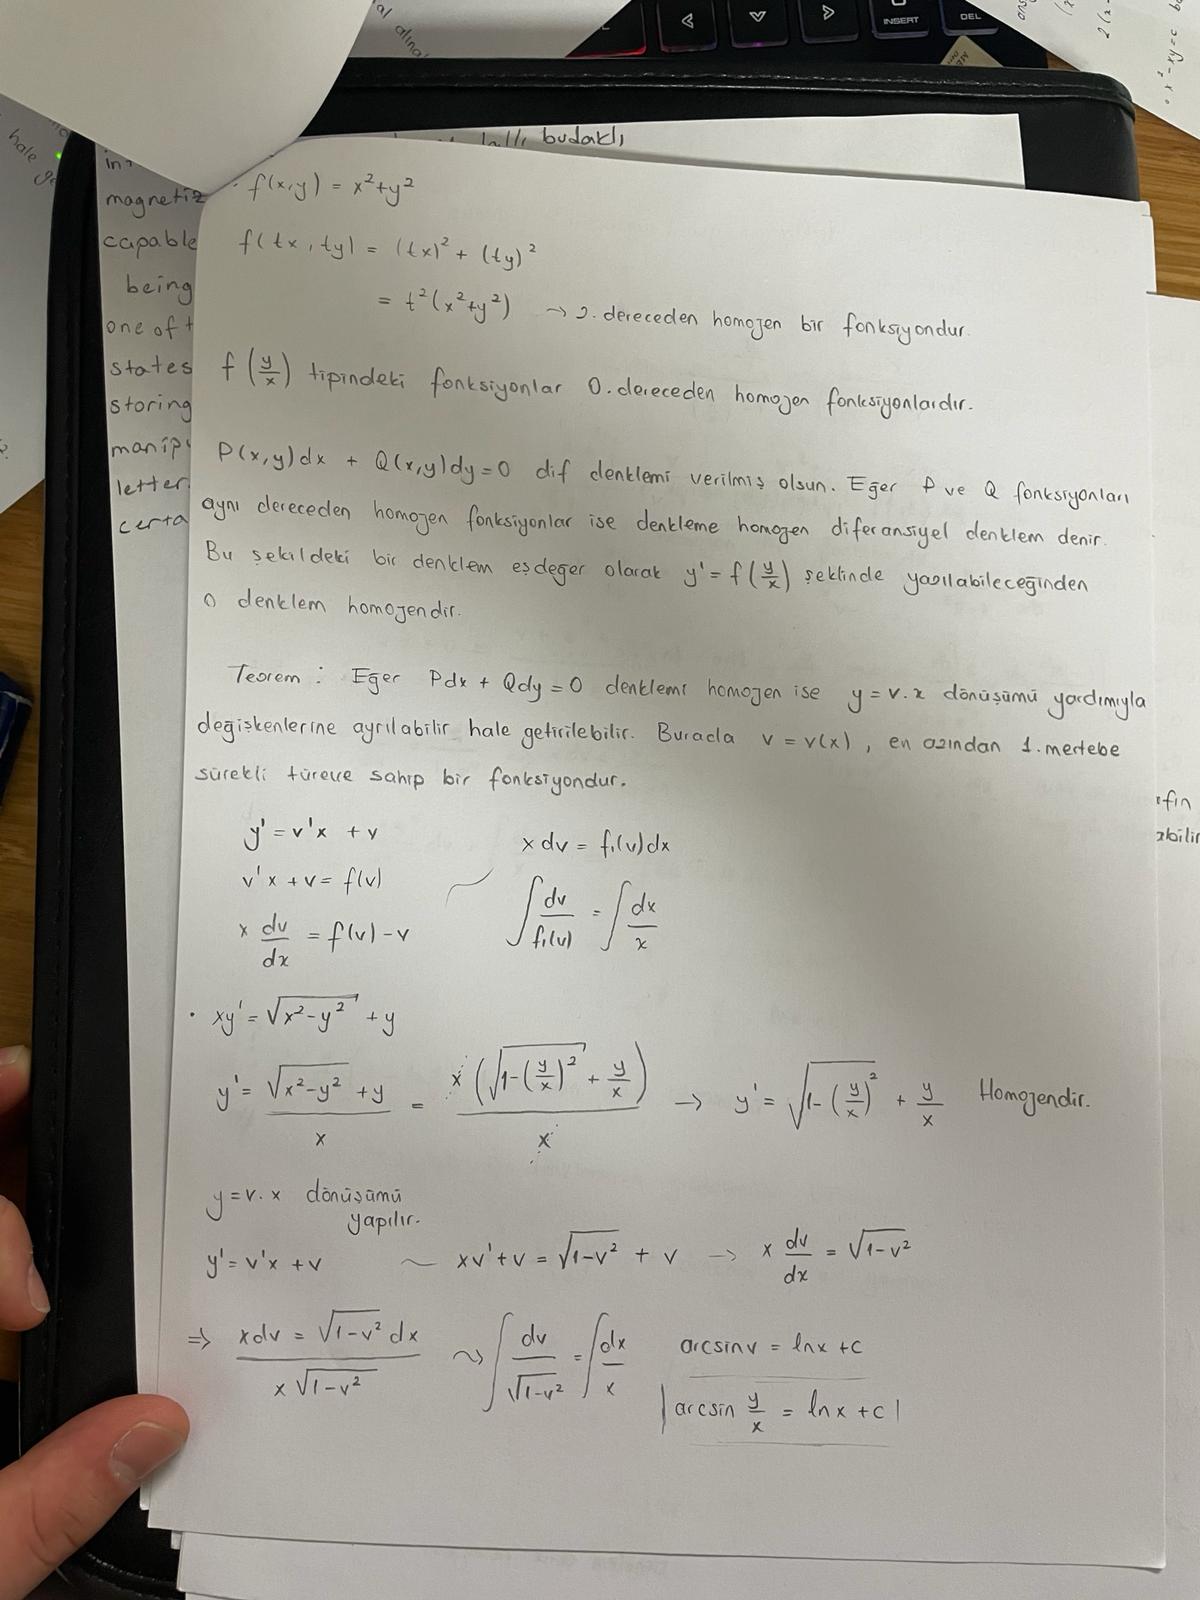 al alına
INSERT
DEL
x² - xy = c
hale
budaklı
magnetiz
capable
being
one of t
states
storing
manip
letter
certa
• f(x,y) = x²+y²
f(tx, ty) = (tx)² + (ty)²
= t²(x²+y²) → 2. dereceden homojen bir fonksiyondur.
f(y/x) tipindeki fonksiyonlar 0. dereceden homojen fonksiyonlardır.
P(x,y)dx + Q(x,y)dy=0 dif denklemi verilmiş olsun. Eğer P ve Q fonksiyonları
aynı dereceden homojen fonksiyonlar ise denkleme homojen diferansiyel denklem denir.
Bu şekildeki bir denklem eşdeğer olarak y' = f(y/x) şeklinde yazılabileceğinden
o denklem homojendir.
Teorem : Eğer Pdx + Qdy = 0 denklemi homojen ise y = v.x dönüşümü yardımıyla
değişkenlerine ayrılabilir hale getirilebilir. Burada v = v(x), en azından 1. mertebe
sürekli türeve sahip bir fonksiyondur.
y' = v'x + v
v'x + v = f(v)
x dv/dx = f(v) - v
x dv = f₁(v)dx
∫ dv/f₁(v) = ∫ dx/x
• xy' = √(x²-y²) + y
y' = (√(x²-y²) + y)/x = x(√(1-(y/x)²) + y/x)/x → y' = √(1-(y/x)²) + y/x Homojendir.
y = v.x dönüşümü
yapılır.
y' = v'x + v ~ xv'+v = √(1-v²) + v → x dv/dx = √(1-v²)
⇒ (xdv = √(1-v²) dx)/(x√(1-v²)) ⤳ ∫ dv/√(1-v²) = ∫ dx/x arcsinv = lnx + c
|arcsin y/x = lnx + c|
fın
abilir